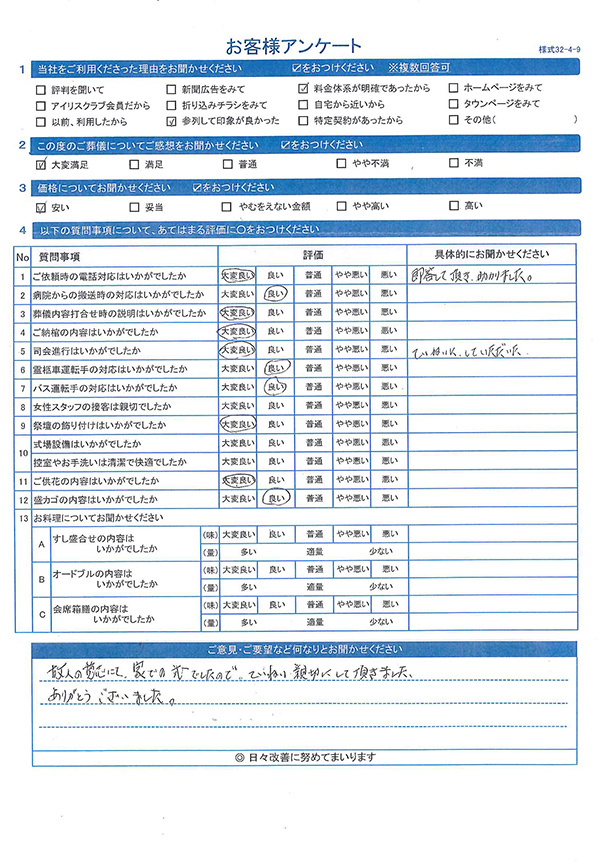 お客様アンケート
様式32-4-9
1 当社をご利用くださった理由をお聞かせください ☑をおつけください ※複数回答可
□ 評判を聞いて □ 新聞広告をみて ☑ 料金体系が明確であったから □ ホームページをみて
□ アイリスクラブ会員だから □ 折り込みチラシをみて □ 自宅から近いから □ タウンページをみて
□ 以前、利用したから ☑ 参列して印象が良かった □ 特定契約があったから □ その他( )
2 この度のご葬儀についてご感想をお聞かせください ☑をおつけください
☑ 大変満足 □ 満足 □ 普通 □ やや不満 □ 不満
3 価格についてお聞かせください ☑をおつけください
☑ 安い □ 妥当 □ やむをえない金額 □ やや高い □ 高い
4 以下の質問事項について、あてはまる評価に○をおつけください
No 質問事項 評価 具体的にお聞かせください
1 ご依頼時の電話対応はいかがでしたか 大変良い 良い 普通 やや悪い 悪い 即答して頂き、助かりました。
2 病院からの搬送時の対応はいかがでしたか 大変良い 良い 普通 やや悪い 悪い
3 葬儀内容打合せ時の説明はいかがでしたか 大変良い 良い 普通 やや悪い 悪い
4 ご納棺の内容はいかがでしたか 大変良い 良い 普通 やや悪い 悪い
5 司会進行はいかがでしたか 大変良い 良い 普通 やや悪い 悪い ていねいに、していただいた
6 霊柩車運転手の対応はいかがでしたか 大変良い 良い 普通 やや悪い 悪い
7 バス運転手の対応はいかがでしたか 大変良い 良い 普通 やや悪い 悪い
8 女性スタッフの接客は親切でしたか 大変良い 良い 普通 やや悪い 悪い
9 祭壇の飾り付けはいかがでしたか 大変良い 良い 普通 やや悪い 悪い
10 式場設備はいかがでしたか 大変良い 良い 普通 やや悪い 悪い
控室やお手洗いは清潔で快適でしたか 大変良い 良い 普通 やや悪い 悪い
11 ご供花の内容はいかがでしたか 大変良い 良い 普通 やや悪い 悪い
12 盛カゴの内容はいかがでしたか 大変良い 良い 普通 やや悪い 悪い
13 お料理についてお聞かせください
A すし盛合せの内容は (味) 大変良い 良い 普通 やや悪い 悪い
いかがでしたか (量) 多い 適量 少ない
B オードブルの内容は (味) 大変良い 良い 普通 やや悪い 悪い
いかがでしたか (量) 多い 適量 少ない
C 会席箱膳の内容は (味) 大変良い 良い 普通 やや悪い 悪い
いかがでしたか (量) 多い 適量 少ない
ご意見・ご要望など何なりとお聞かせください
故人の 家での でしたので。ていねい 親切にして頂きました、
ありがとうございました。
◎ 日々改善に努めてまいります